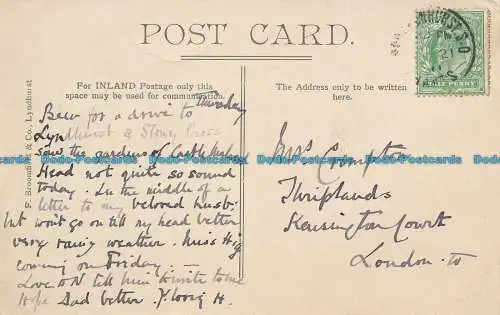 POST CARD.
For INLAND Postage only this
space may be used for communication.
The Address only to be written
here.
F. Broomfield & Co., Lyndhurst
HALF PENNY
Thursday
Been for a drive to
Lyndhurst & Stoney Cross
Saw the gardens of Castle
Head not quite so sound
today. In the middle of a
letter to my beloved husb:
but won't go on till my head better
very rainy weather. Miss
coming on Friday.
Love ON tell him to write to me
Hope Dad better. Y. loving H.
Mrs Crompton
Thriplands
Kensington Court
London W
Dodo-Postcards Dodo-Postcards Dodo-Postcards Dodo-Postcards